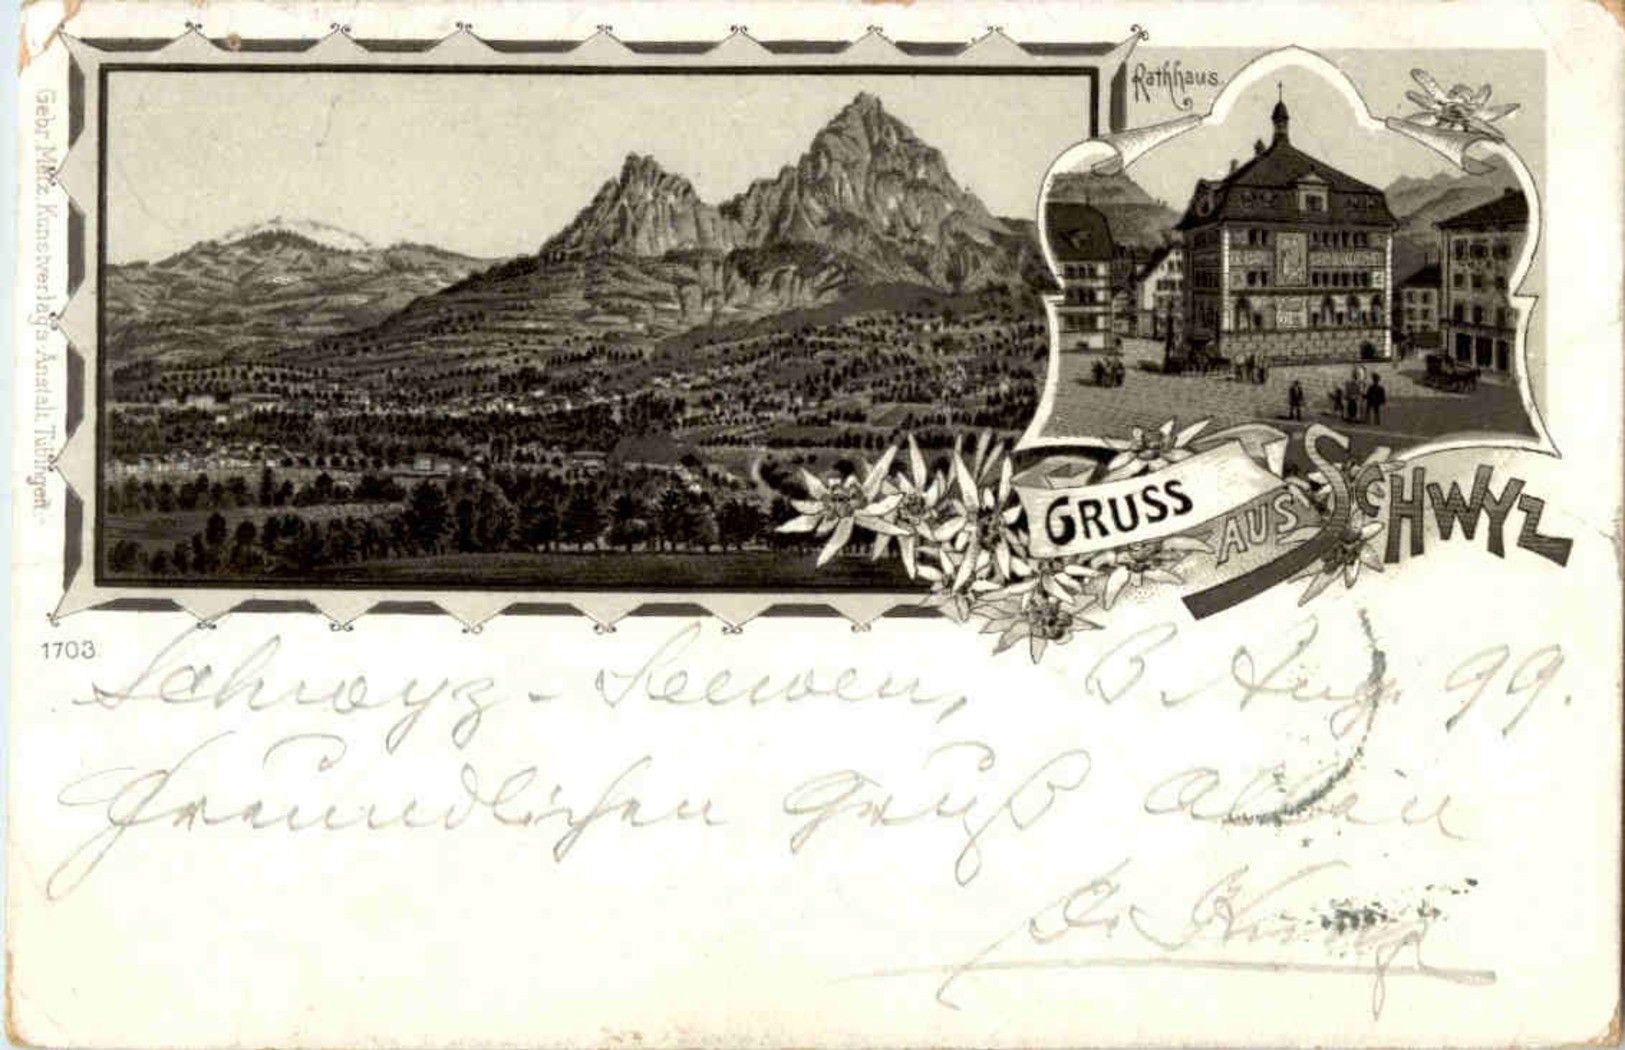 Gebr. Metz, Kunstverlags-Anstalt, Tübingen.
Rathhaus.
GRUSS AUS SCHWYZ
1703
Schwyz-Seewen, 3. Aug. 99.
Freundlichen Gruß allen